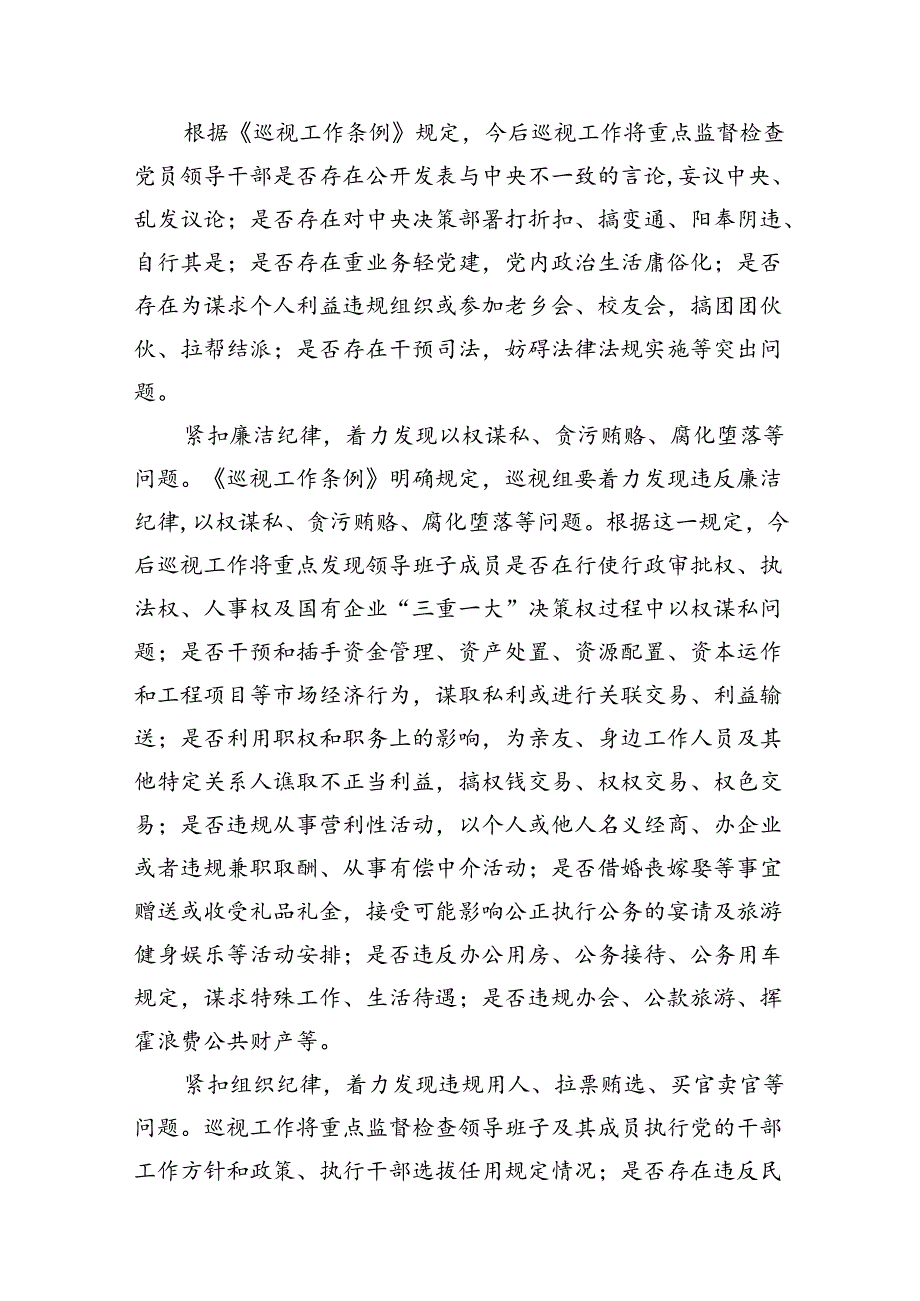 根据《巡视工作条例》规定，今后巡视工作将重点监督检查
党员领导干部是否存在公开发表与中央不一致的言论,妄议中央、
乱发议论；是否存在对中央决策部署打折扣、搞变通、阳奉阴违、
自行其是；是否存在重业务轻党建，党内政治生活庸俗化；是否
存在为谋求个人利益违规组织或参加老乡会、校友会，搞团团伙
伙、拉帮结派；是否存在干预司法，妨碍法律法规实施等突出问
题。
紧扣廉洁纪律，着力发现以权谋私、贪污贿赂、腐化堕落等
问题。《巡视工作条例》明确规定，巡视组要着力发现违反廉洁
纪律,以权谋私、贪污贿赂、腐化堕落等问题。根据这一规定，今
后巡视工作将重点发现领导班子成员是否在行使行政审批权、执
法权、人事权及国有企业“三重一大”决策权过程中以权谋私问
题；是否干预和插手资金管理、资产处置、资源配置、资本运作
和工程项目等市场经济行为，谋取私利或进行关联交易、利益输
送；是否利用职权和职务上的影响，为亲友、身边工作人员及其
他特定关系人谯取不正当利益，搞权钱交易、权权交易、权色交
易；是否违规从事营利性活动，以个人或他人名义经商、办企业
或者违规兼职取酬、从事有偿中介活动；是否借婚丧嫁娶等事宜
赠送或收受礼品礼金，接受可能影响公正执行公务的宴请及旅游
健身娱乐等活动安排；是否违反办公用房、公务接待、公务用车
规定，谋求特殊工作、生活待遇；是否违规办会、公款旅游、挥
霍浪费公共财产等。
紧扣组织纪律，着力发现违规用人、拉票贿选、买官卖官等
问题。巡视工作将重点监督检查领导班子及其成员执行党的干部
工作方针和政策、执行干部选拔任用规定情况；是否存在违反民